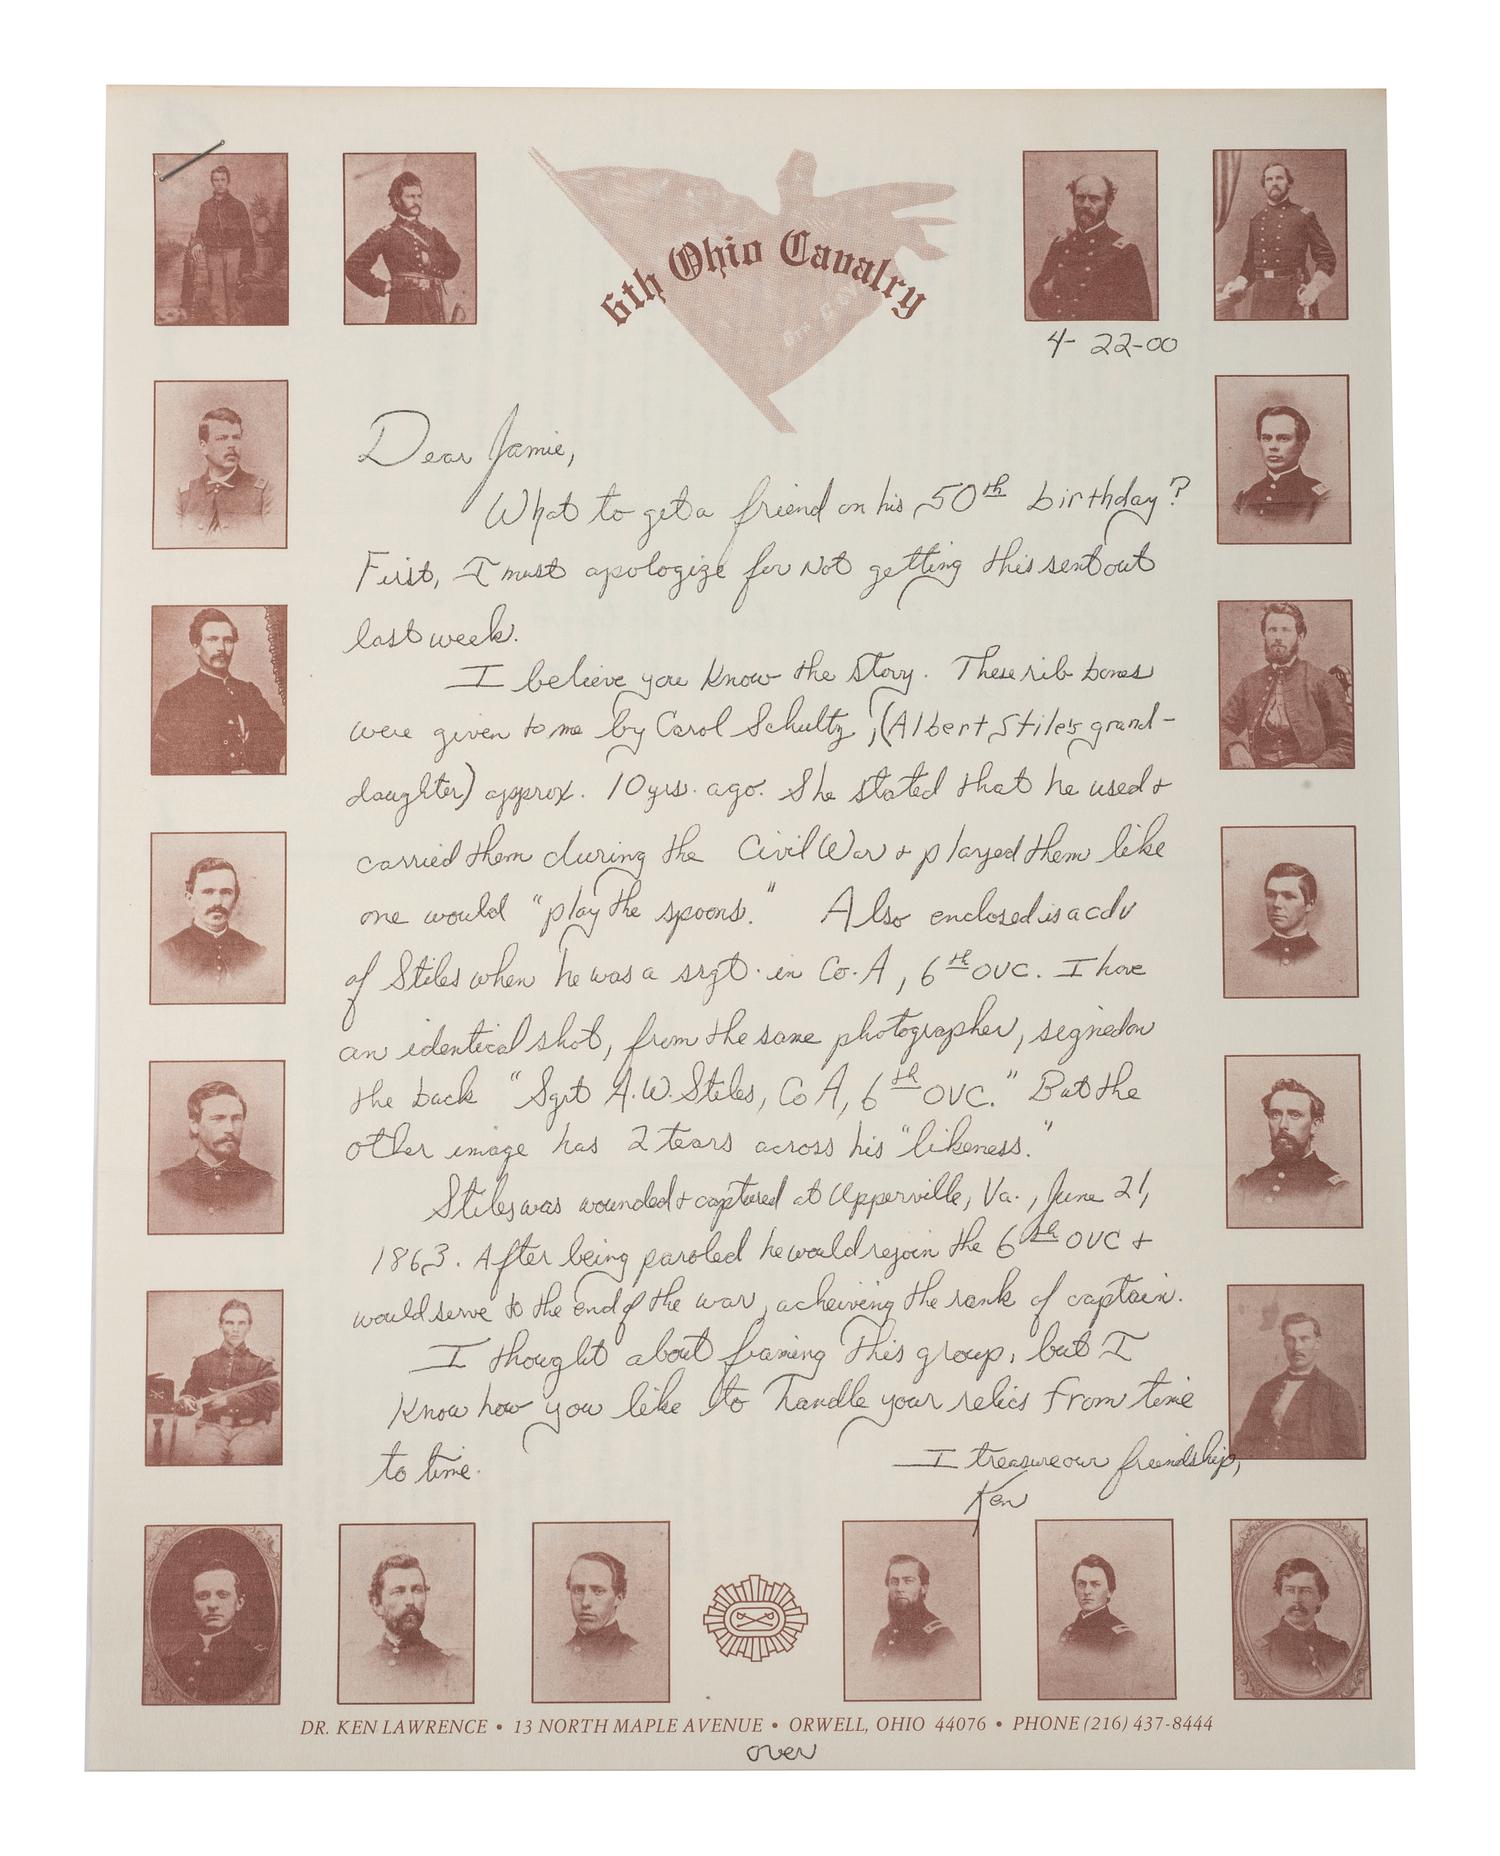 6th Ohio Cavalry
4-22-00
Dear Jamie,
What to get a friend on his 50th birthday?
First, I must apologize for not getting this sent out
last week.
I believe you know the story. These rib bones
were given to me by Carol Schultz, (Albert Stile's grand-
daughter) approx. 10 yrs. ago. She stated that he used &
carried them during the Civil War & played them like
one would "play the spoons." Also enclosed is a cdv
of Stiles when he was a srgt. in Co. A, 6th OVC. I have
an identical shot, from the same photographer, signed on
the back "Sgt A.W. Stiles, Co A, 6th OVC." But the
other image has 2 tears across his "likeness."
Stiles was wounded & captured at Upperville, Va., June 21,
1863. After being paroled he would rejoin the 6th OVC &
would serve to the end of the war, acheiving the rank of captain.
I thought about framing this group, but I
know how you like to handle your relics from time
to time.
I treasure our friendship,
Ken
DR. KEN LAWRENCE • 13 NORTH MAPLE AVENUE • ORWELL, OHIO 44076 • PHONE (216) 437-8444
over